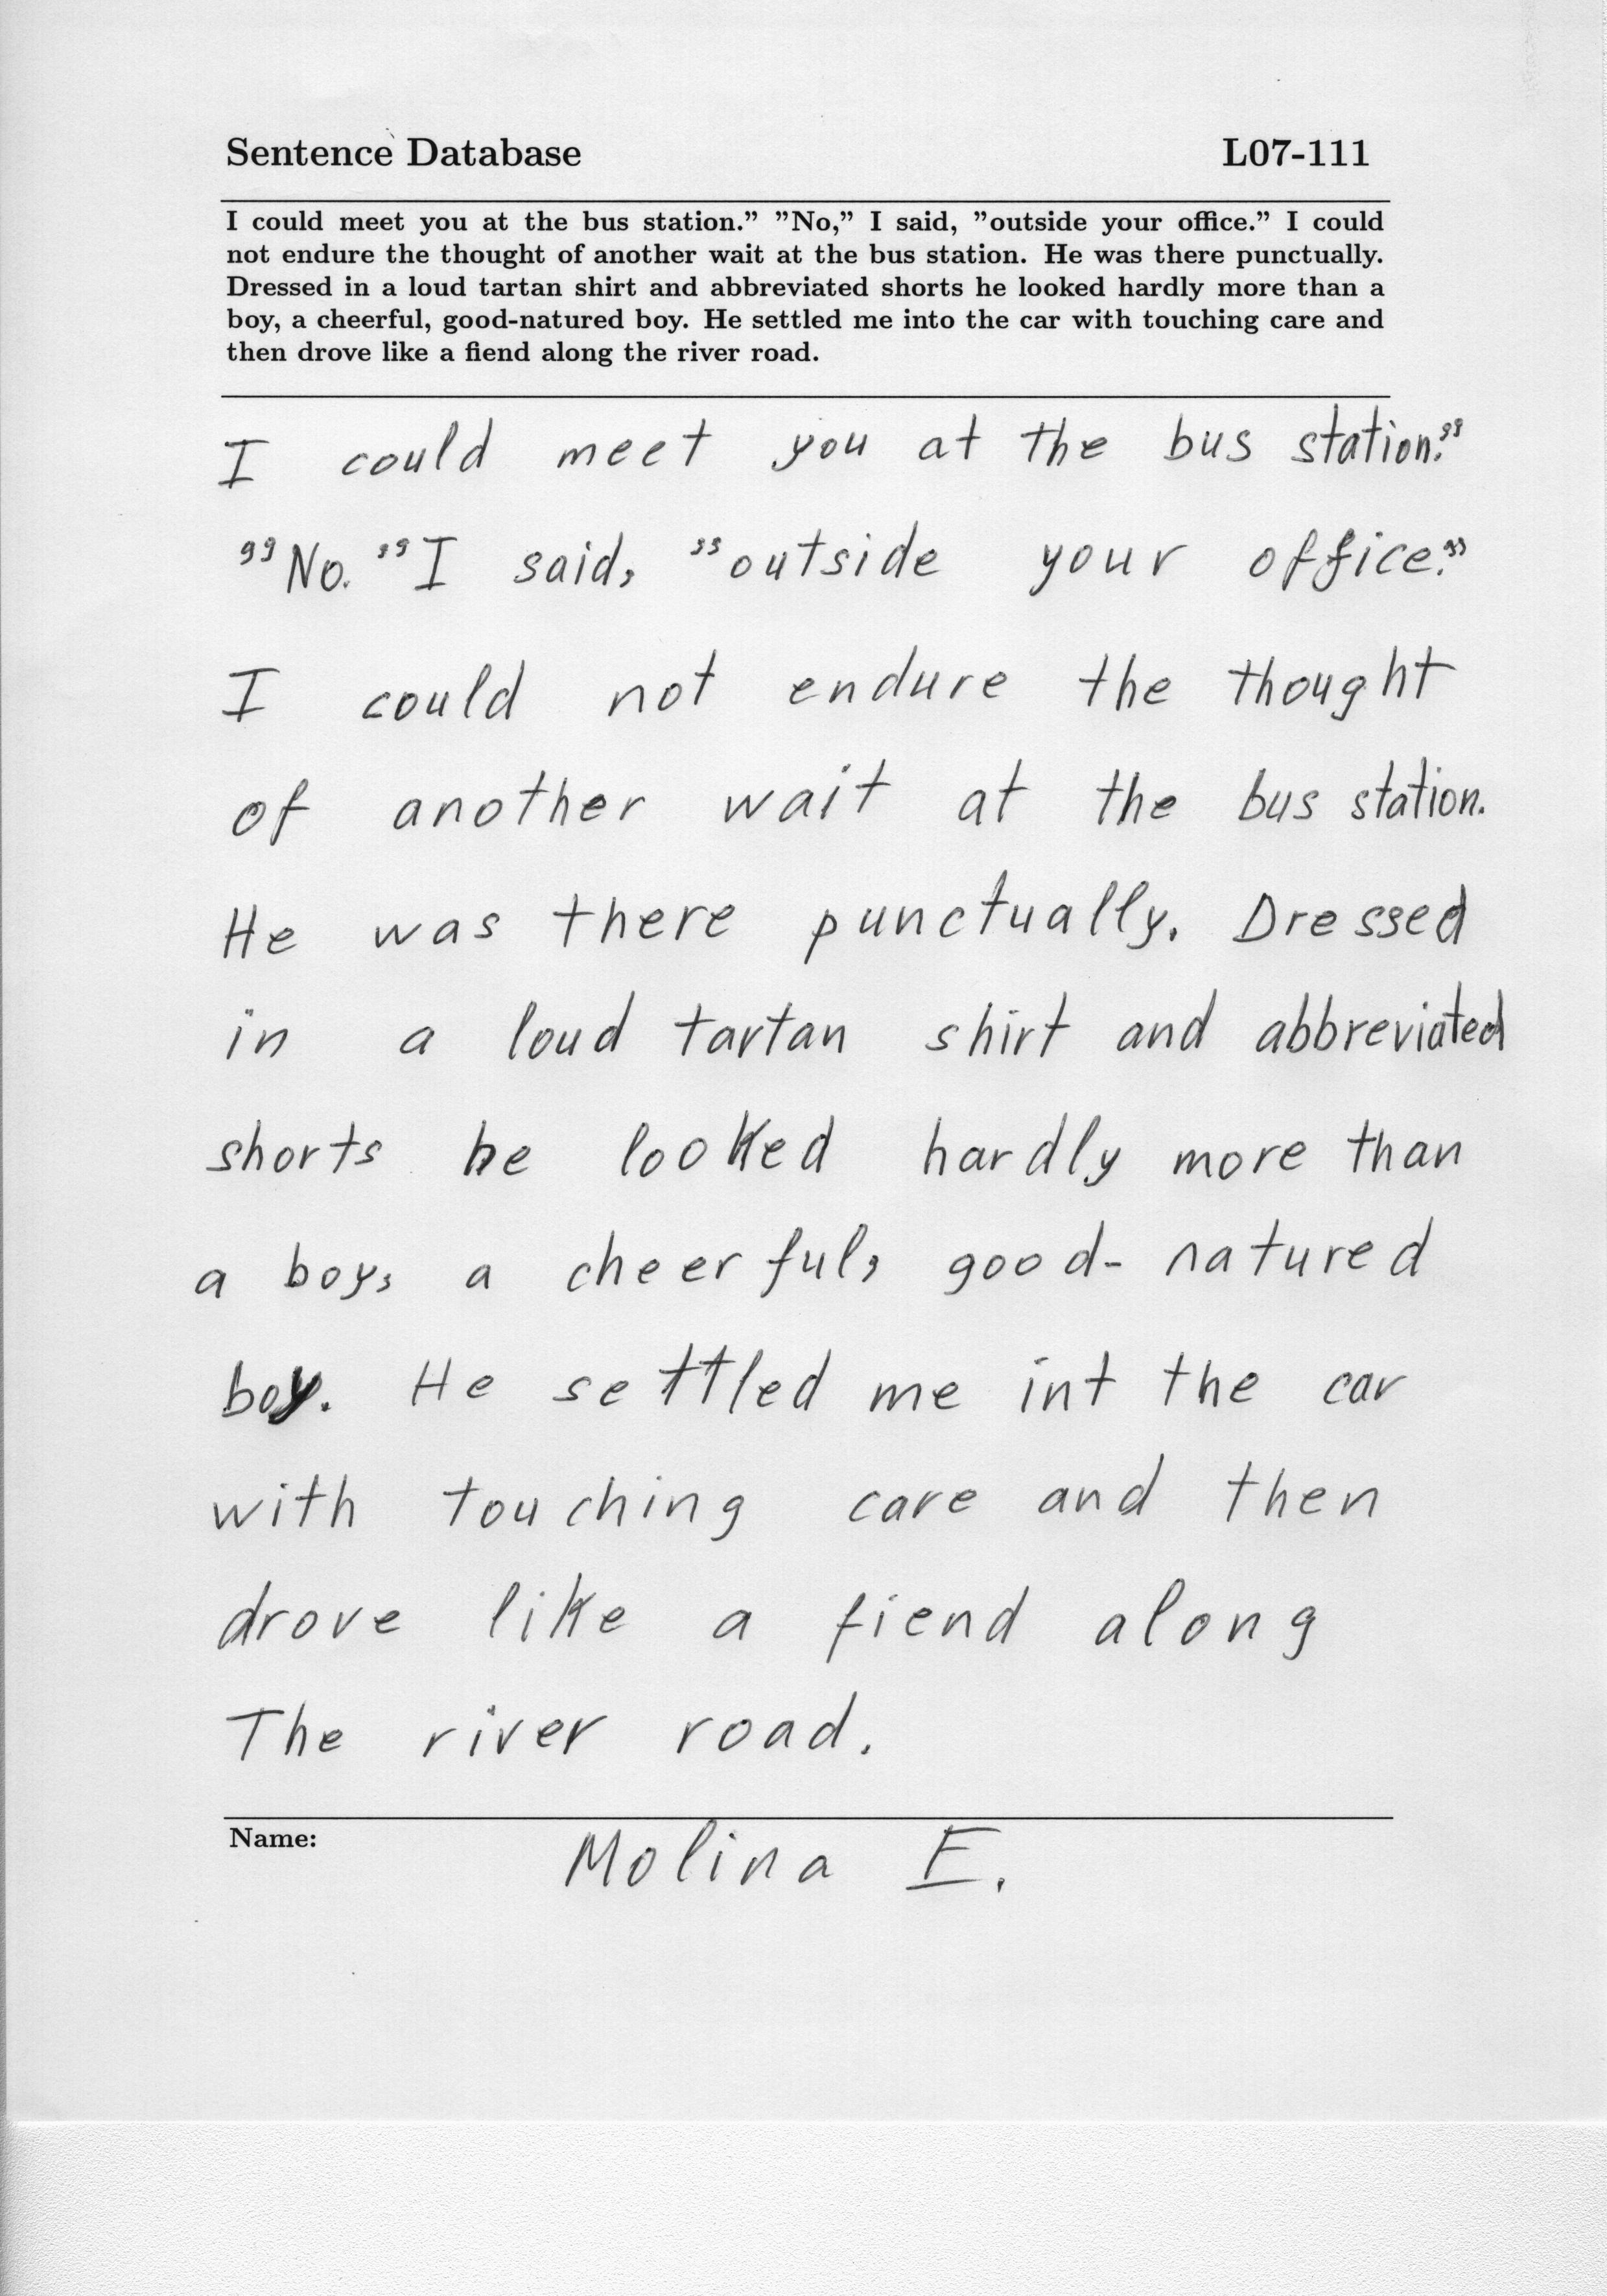 Sentence Database L07-111
I could meet you at the bus station.” ”No,” I said, ”outside your office.” I could
not endure the thought of another wait at the bus station. He was there punctually.
Dressed in a loud tartan shirt and abbreviated shorts he looked hardly more than a
boy, a cheerful, good-natured boy. He settled me into the car with touching care and
then drove like a fiend along the river road.
I could meet you at the bus station.”
”No.” I said, ”outside your office.”
I could not endure the thought
of another wait at the bus station.
He was there punctually. Dressed
in a loud tartan shirt and abbreviated
shorts he looked hardly more than
a boy, a cheerful, good-natured
boy. He settled me int the car
with touching care and then
drove like a fiend along
The river road.
Name: Molina E.